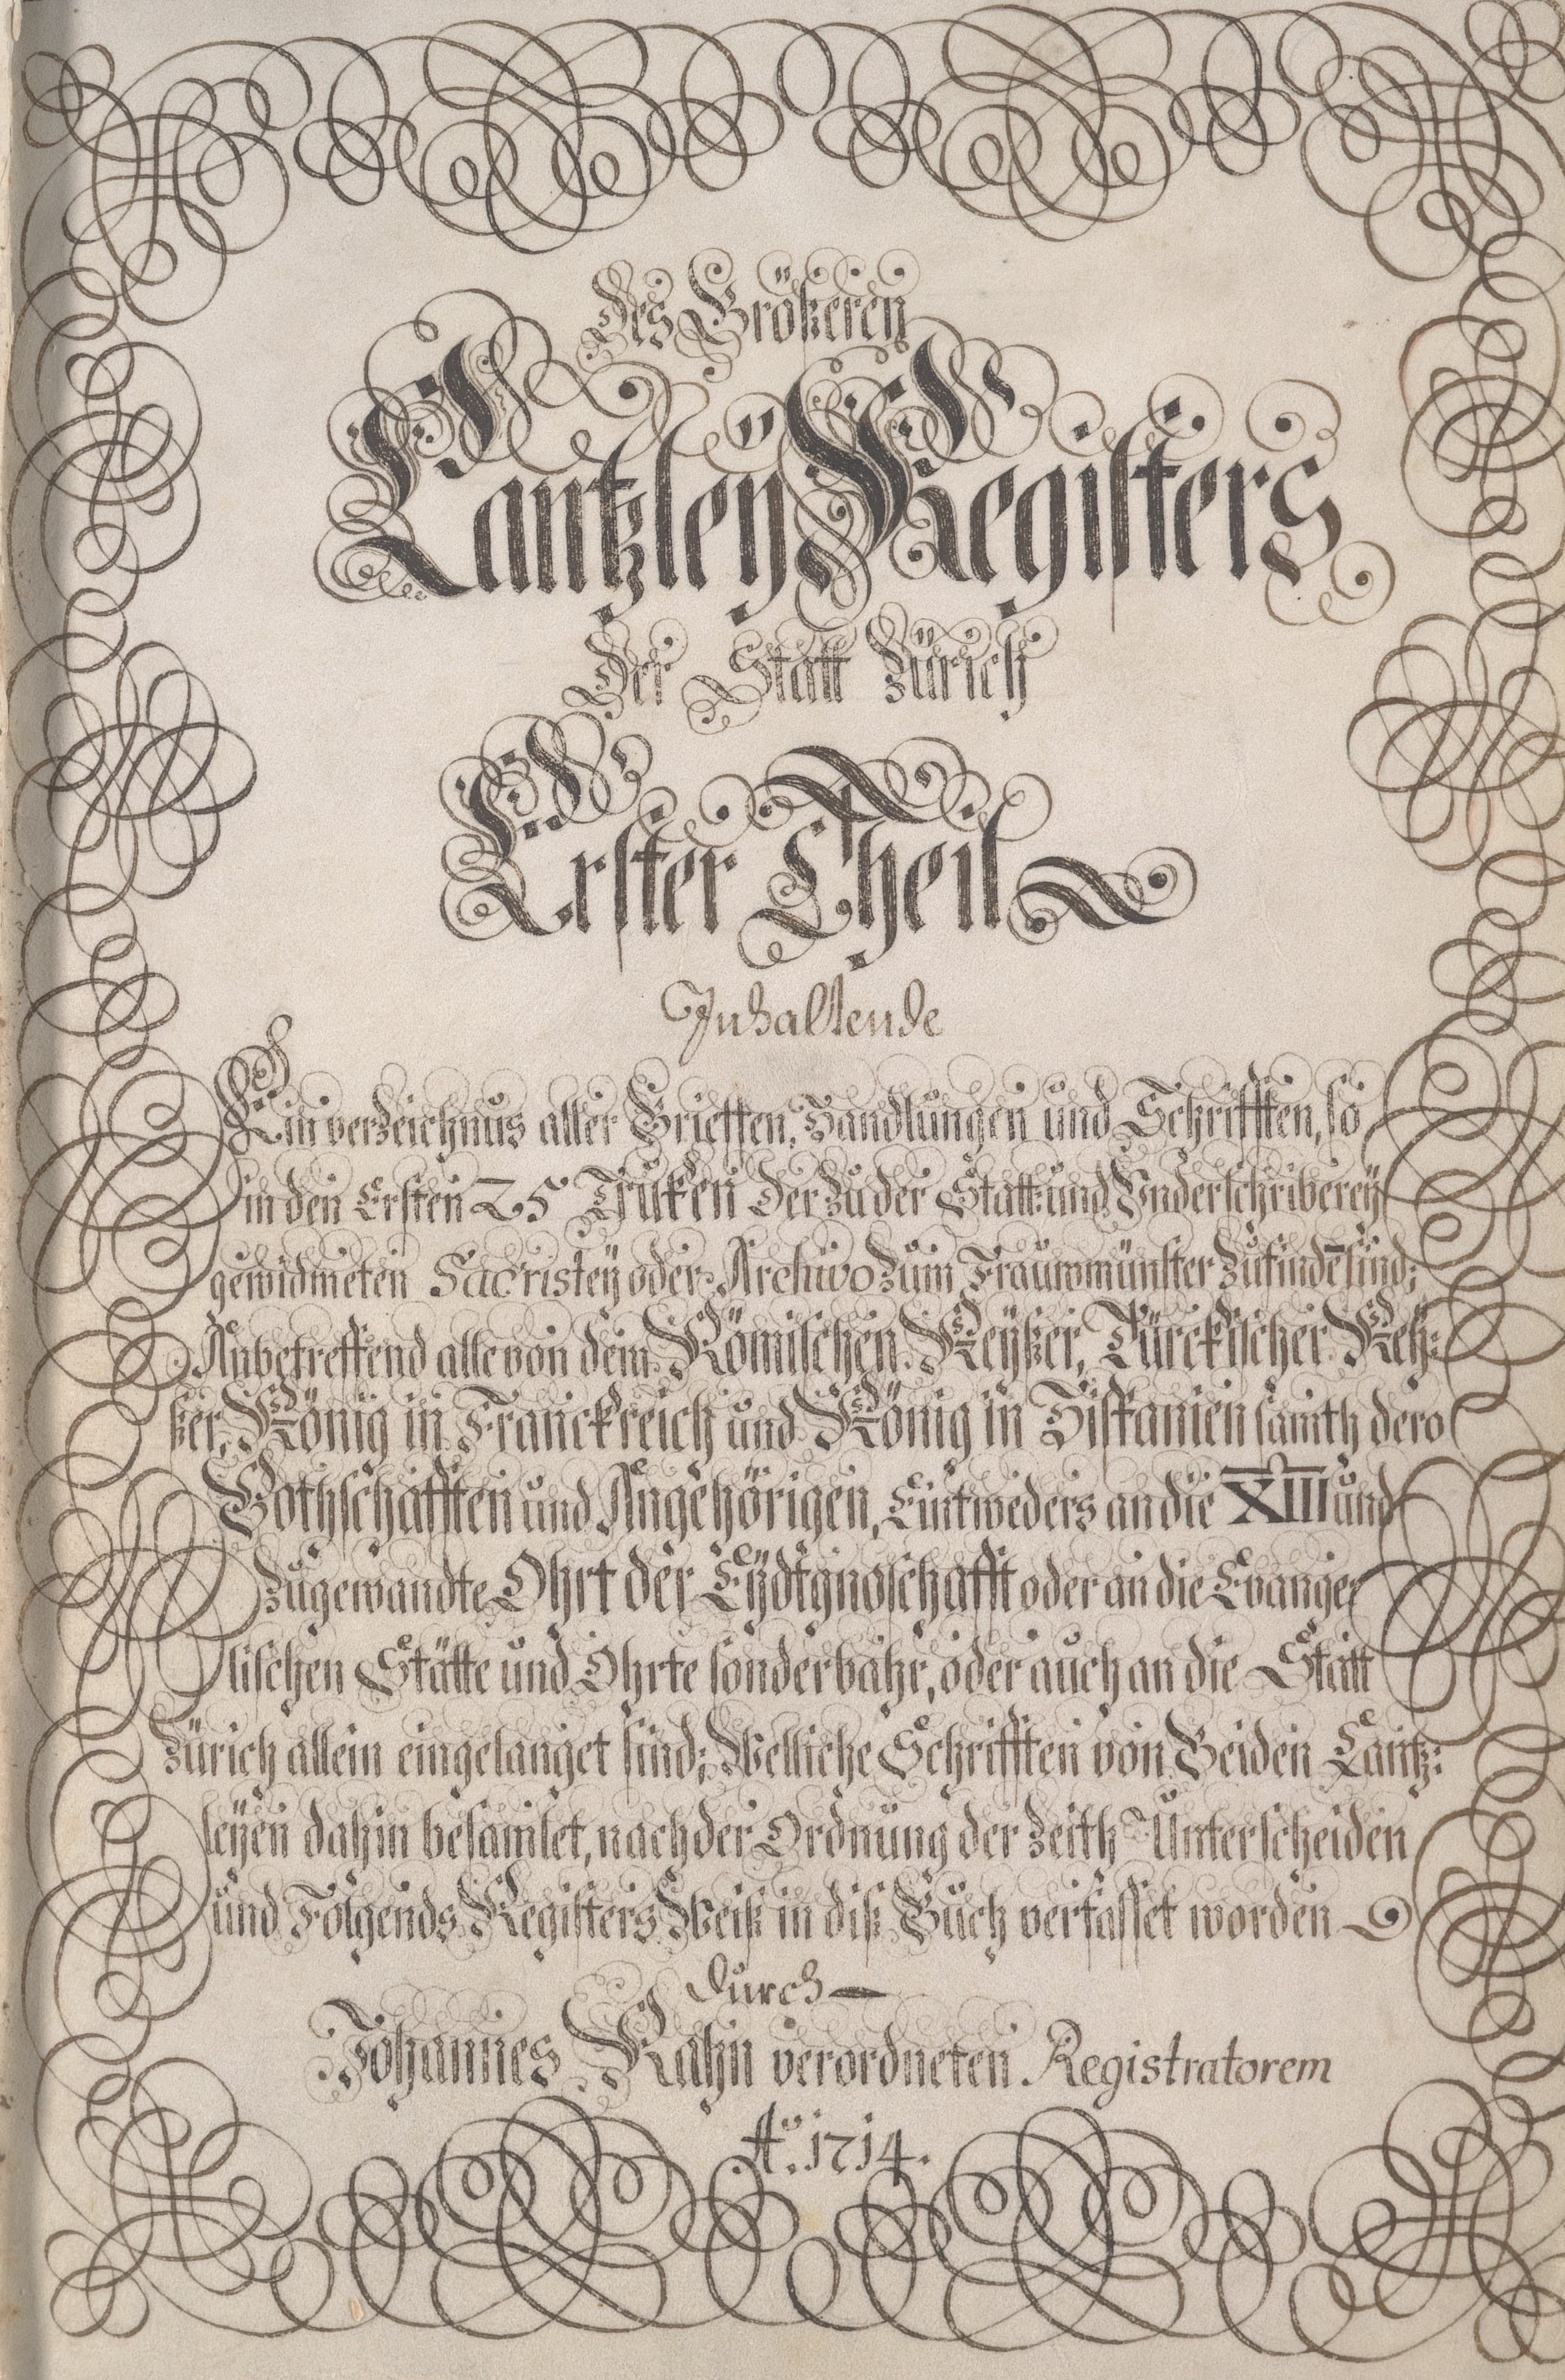 Des Größeren
Cantzleÿ Registers
Der Statt Zürich
Erster Theil
Inhaltende
Ein verzeichnus aller Brieffen, Handlungen und Schrifften, so
in den Ersten 25 Truken der zu der Statt und Underschriberey
gewidmeten Sacristey oder Archivo zum Frauwmünster zufindē sind;
Anbetreffend alle von dem Römischen Keyßer, Türckischer Key:
ßer, König in Franckreich und König in Hispanien samth dero
Bothschafften und Angehörigen, Eintweders an die XIII und
zugewandte Ohrt der Eydtgnoschafft oder an die Evange:
lischen Stätte und Ohrte sonderbahr, oder auch an die Statt
Zürich allein eingelanget sind; Welliche Schrifften von Beiden Cantz:
leyen dahin besamlet, nach der Ordnung der Zeith Unterscheiden
und Folgends Registers Weiß in diß Buch verfasset worden
durch
Johannes Rahn verordneten Registratorem
A.º 1714.